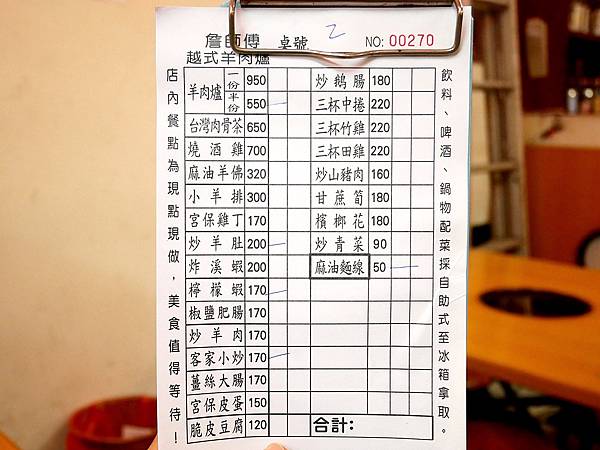 詹師傅 桌號 2 NO: 00270
越式羊肉爐
店內餐點為現點現做，美食值得等待！
羊肉爐 一份 950
半份 550
台灣肉骨茶 650
燒酒雞 700
麻油羊佛 320
小羊排 300
宮保雞丁 170
炒羊肚 200
炸溪蝦 200
檸檬蝦 170
椒鹽肥腸 170
炒羊肉 170
客家小炒 170
薑絲大腸 170
宮保皮蛋 150
脆皮豆腐 120
炒鵝腸 180
三杯中捲 220
三杯竹雞 220
三杯田雞 220
炒山豬肉 160
甘蔗筍 180
檳榔花 180
炒青菜 90
麻油麵線 50
合計:
飲料、啤酒、鍋物配菜採自助式至冰箱拿取。